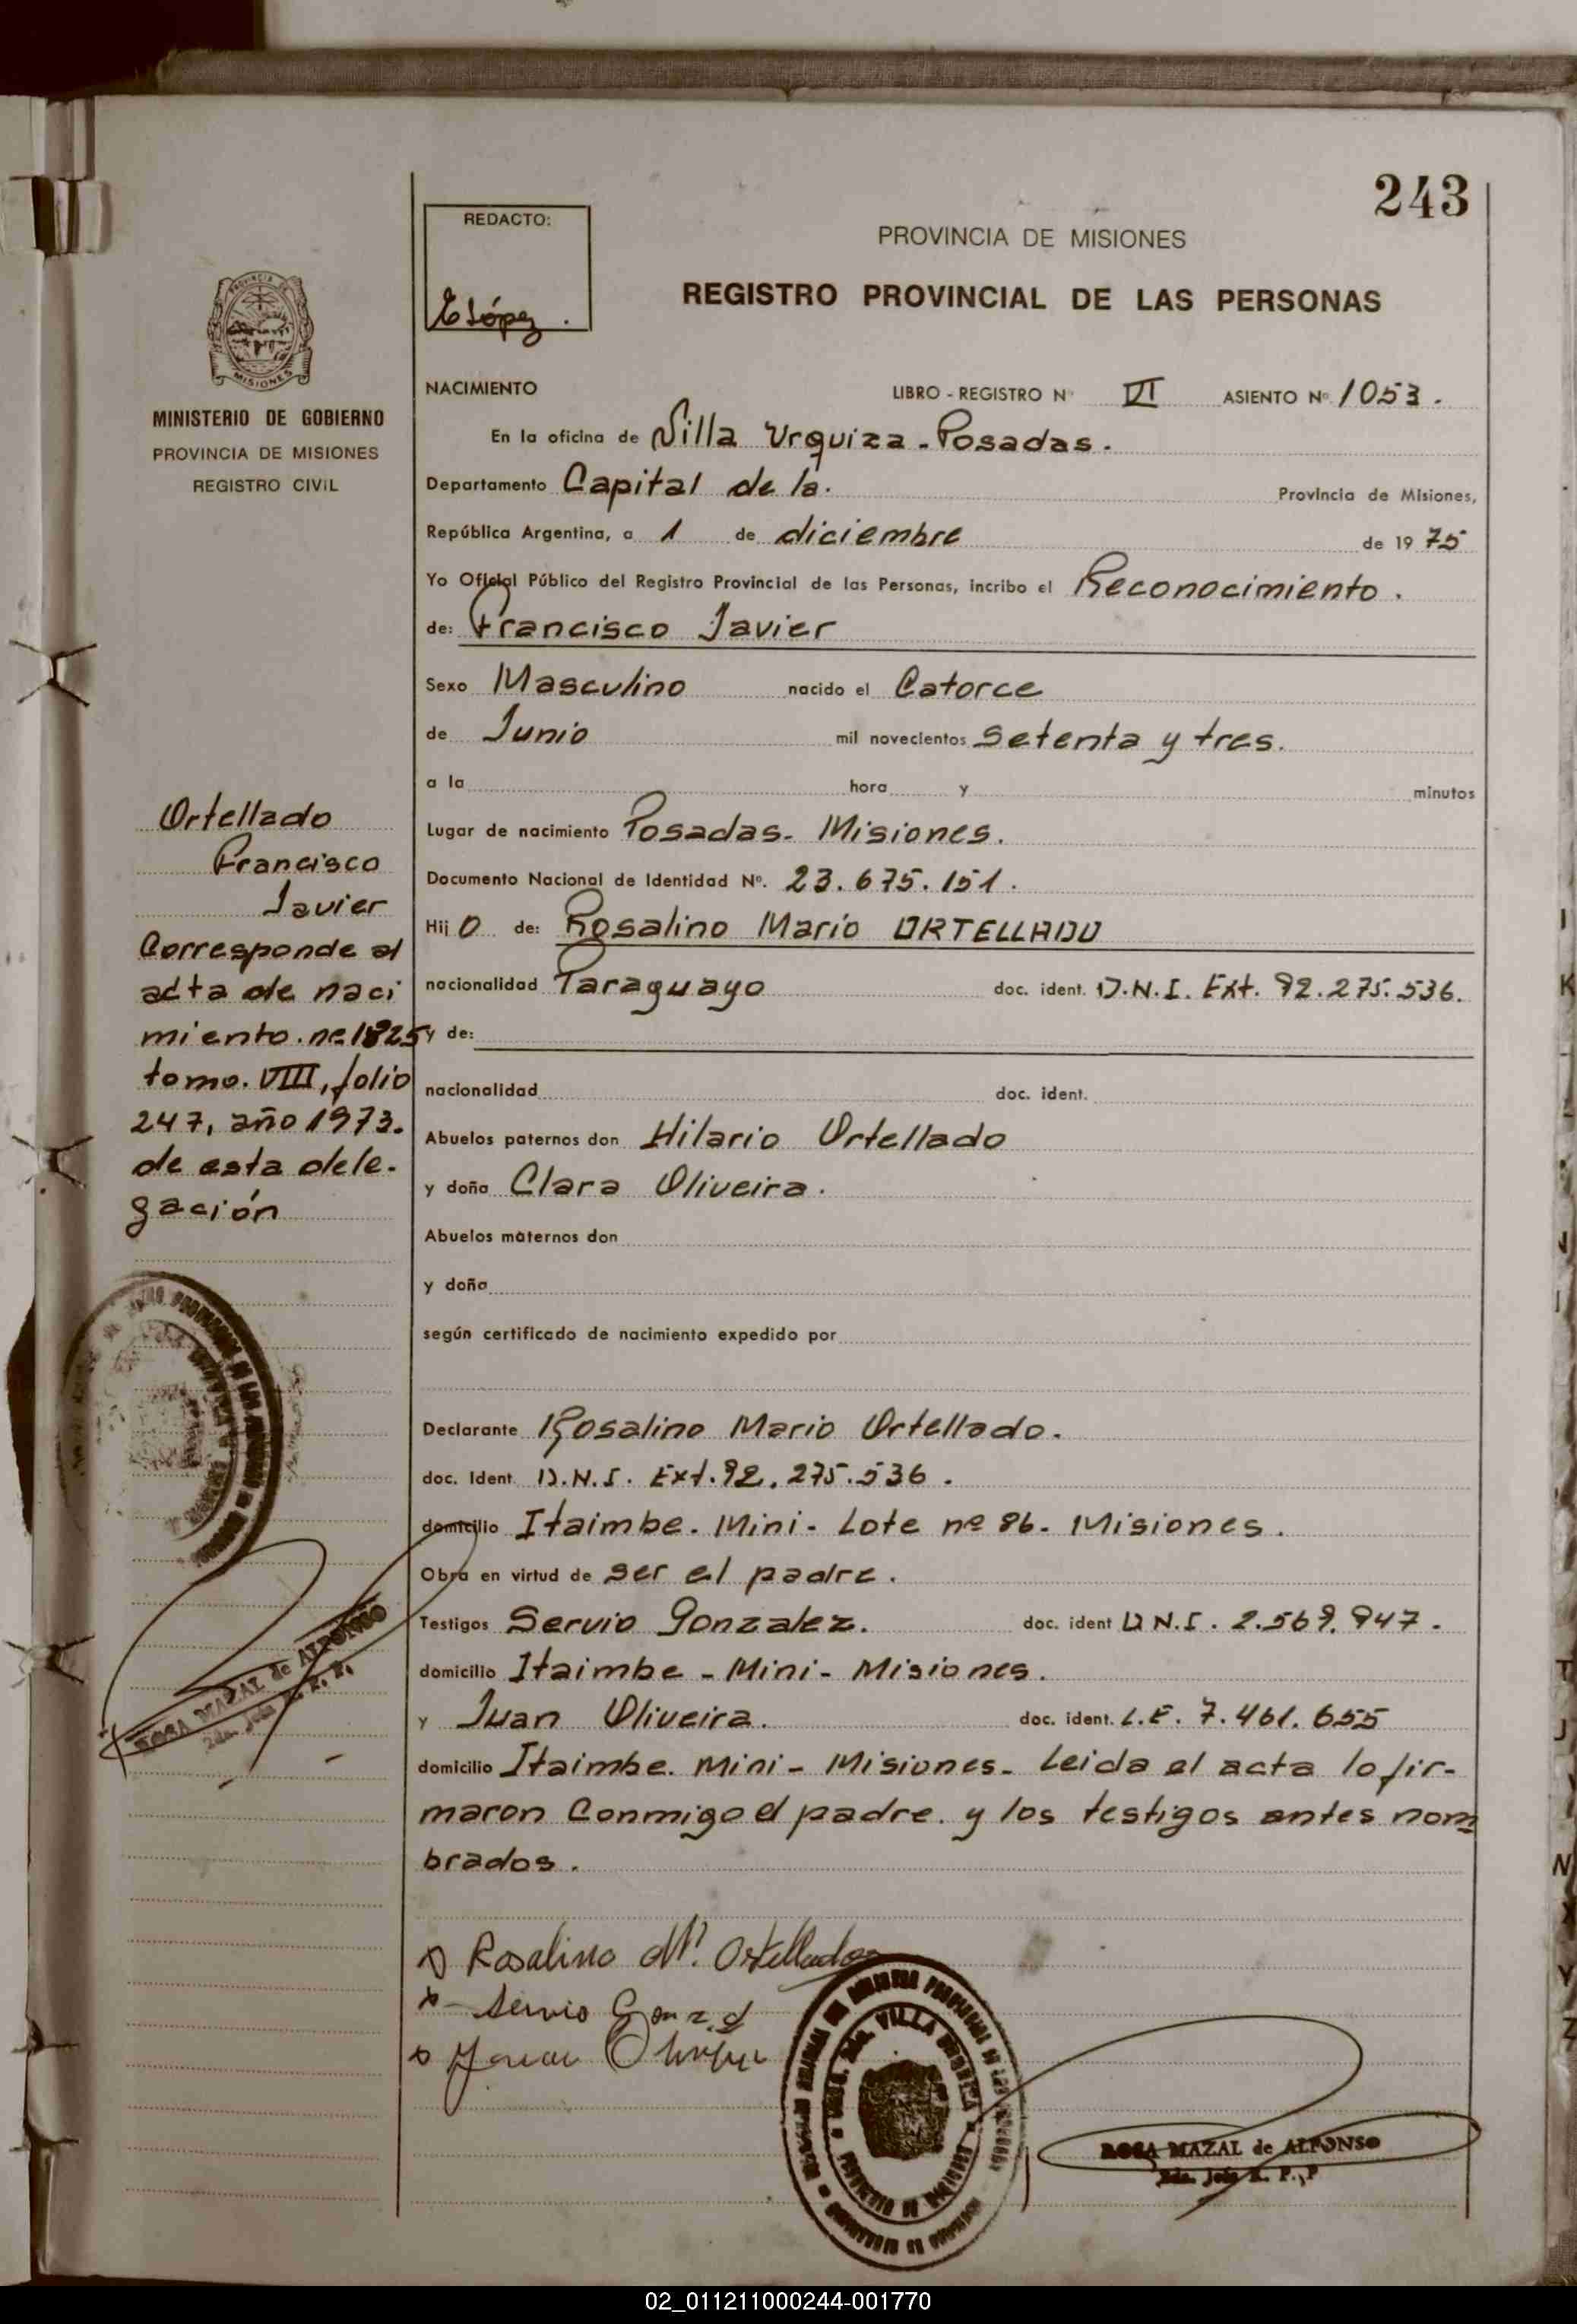 243
REDACTO:
E López.
PROVINCIA DE MISIONES
REGISTRO PROVINCIAL DE LAS PERSONAS
PROVINCIA DE
MISIONES
MINISTERIO DE GOBIERNO
PROVINCIA DE MISIONES
REGISTRO CIVIL
NACIMIENTO LIBRO - REGISTRO Nº VI ASIENTO Nº 1053.
En la oficina de Villa Urquiza - Posadas.
Departamento Capital de la. Provincia de Misiones,
República Argentina, a 1 de diciembre de 1975
Yo Oficial Público del Registro Provincial de las Personas, incribo el Reconocimiento.
de: Francisco Javier
Sexo Masculino nacido el Catorce
de Junio mil novecientos setenta y tres.
a la hora y minutos
Lugar de nacimiento Posadas- Misiones.
Documento Nacional de Identidad Nº. 23.675.151.
Hij o de: Rosalino Mario ORTELLADO
nacionalidad Paraguayo doc. ident. D.N.I. Ext. 92.275.536.
y de:
nacionalidad doc. ident.
Abuelos paternos don Hilario Ortellado
y doña Clara Oliveira.
Abuelos maternos don
y doña
según certificado de nacimiento expedido por
Declarante Rosalino Mario Ortellado.
doc. Ident D.N.I. Ext. 92.275.536.
domicilio Itaimbe. Mini- Lote nº 86- Misiones.
Obra en virtud de ser el padre.
Testigos Servio Gonzalez. doc. ident D.N.I. 2.569.947.
domicilio Itaimbe - Mini - Misiones.
y Juan Oliveira. doc. ident. L.E. 7.461.655
domicilio Itaimbe. Mini - Misiones. Leida el acta lo fir-
maron conmigo el padre. y los testigos antes nom
brados.
Rosalino Mº. Ortellado
Servio
ROSA MAZAL de ALFONSO
Ortellado
Francisco
Javier
Corresponde al
acta de naci
miento. nº 1825
tomo. VIII, folio
247, año 1973.
de esta dele-
gación
ROSA MAZAL de ALFONSO
VILLA URQUIZA
02_011211000244-001770